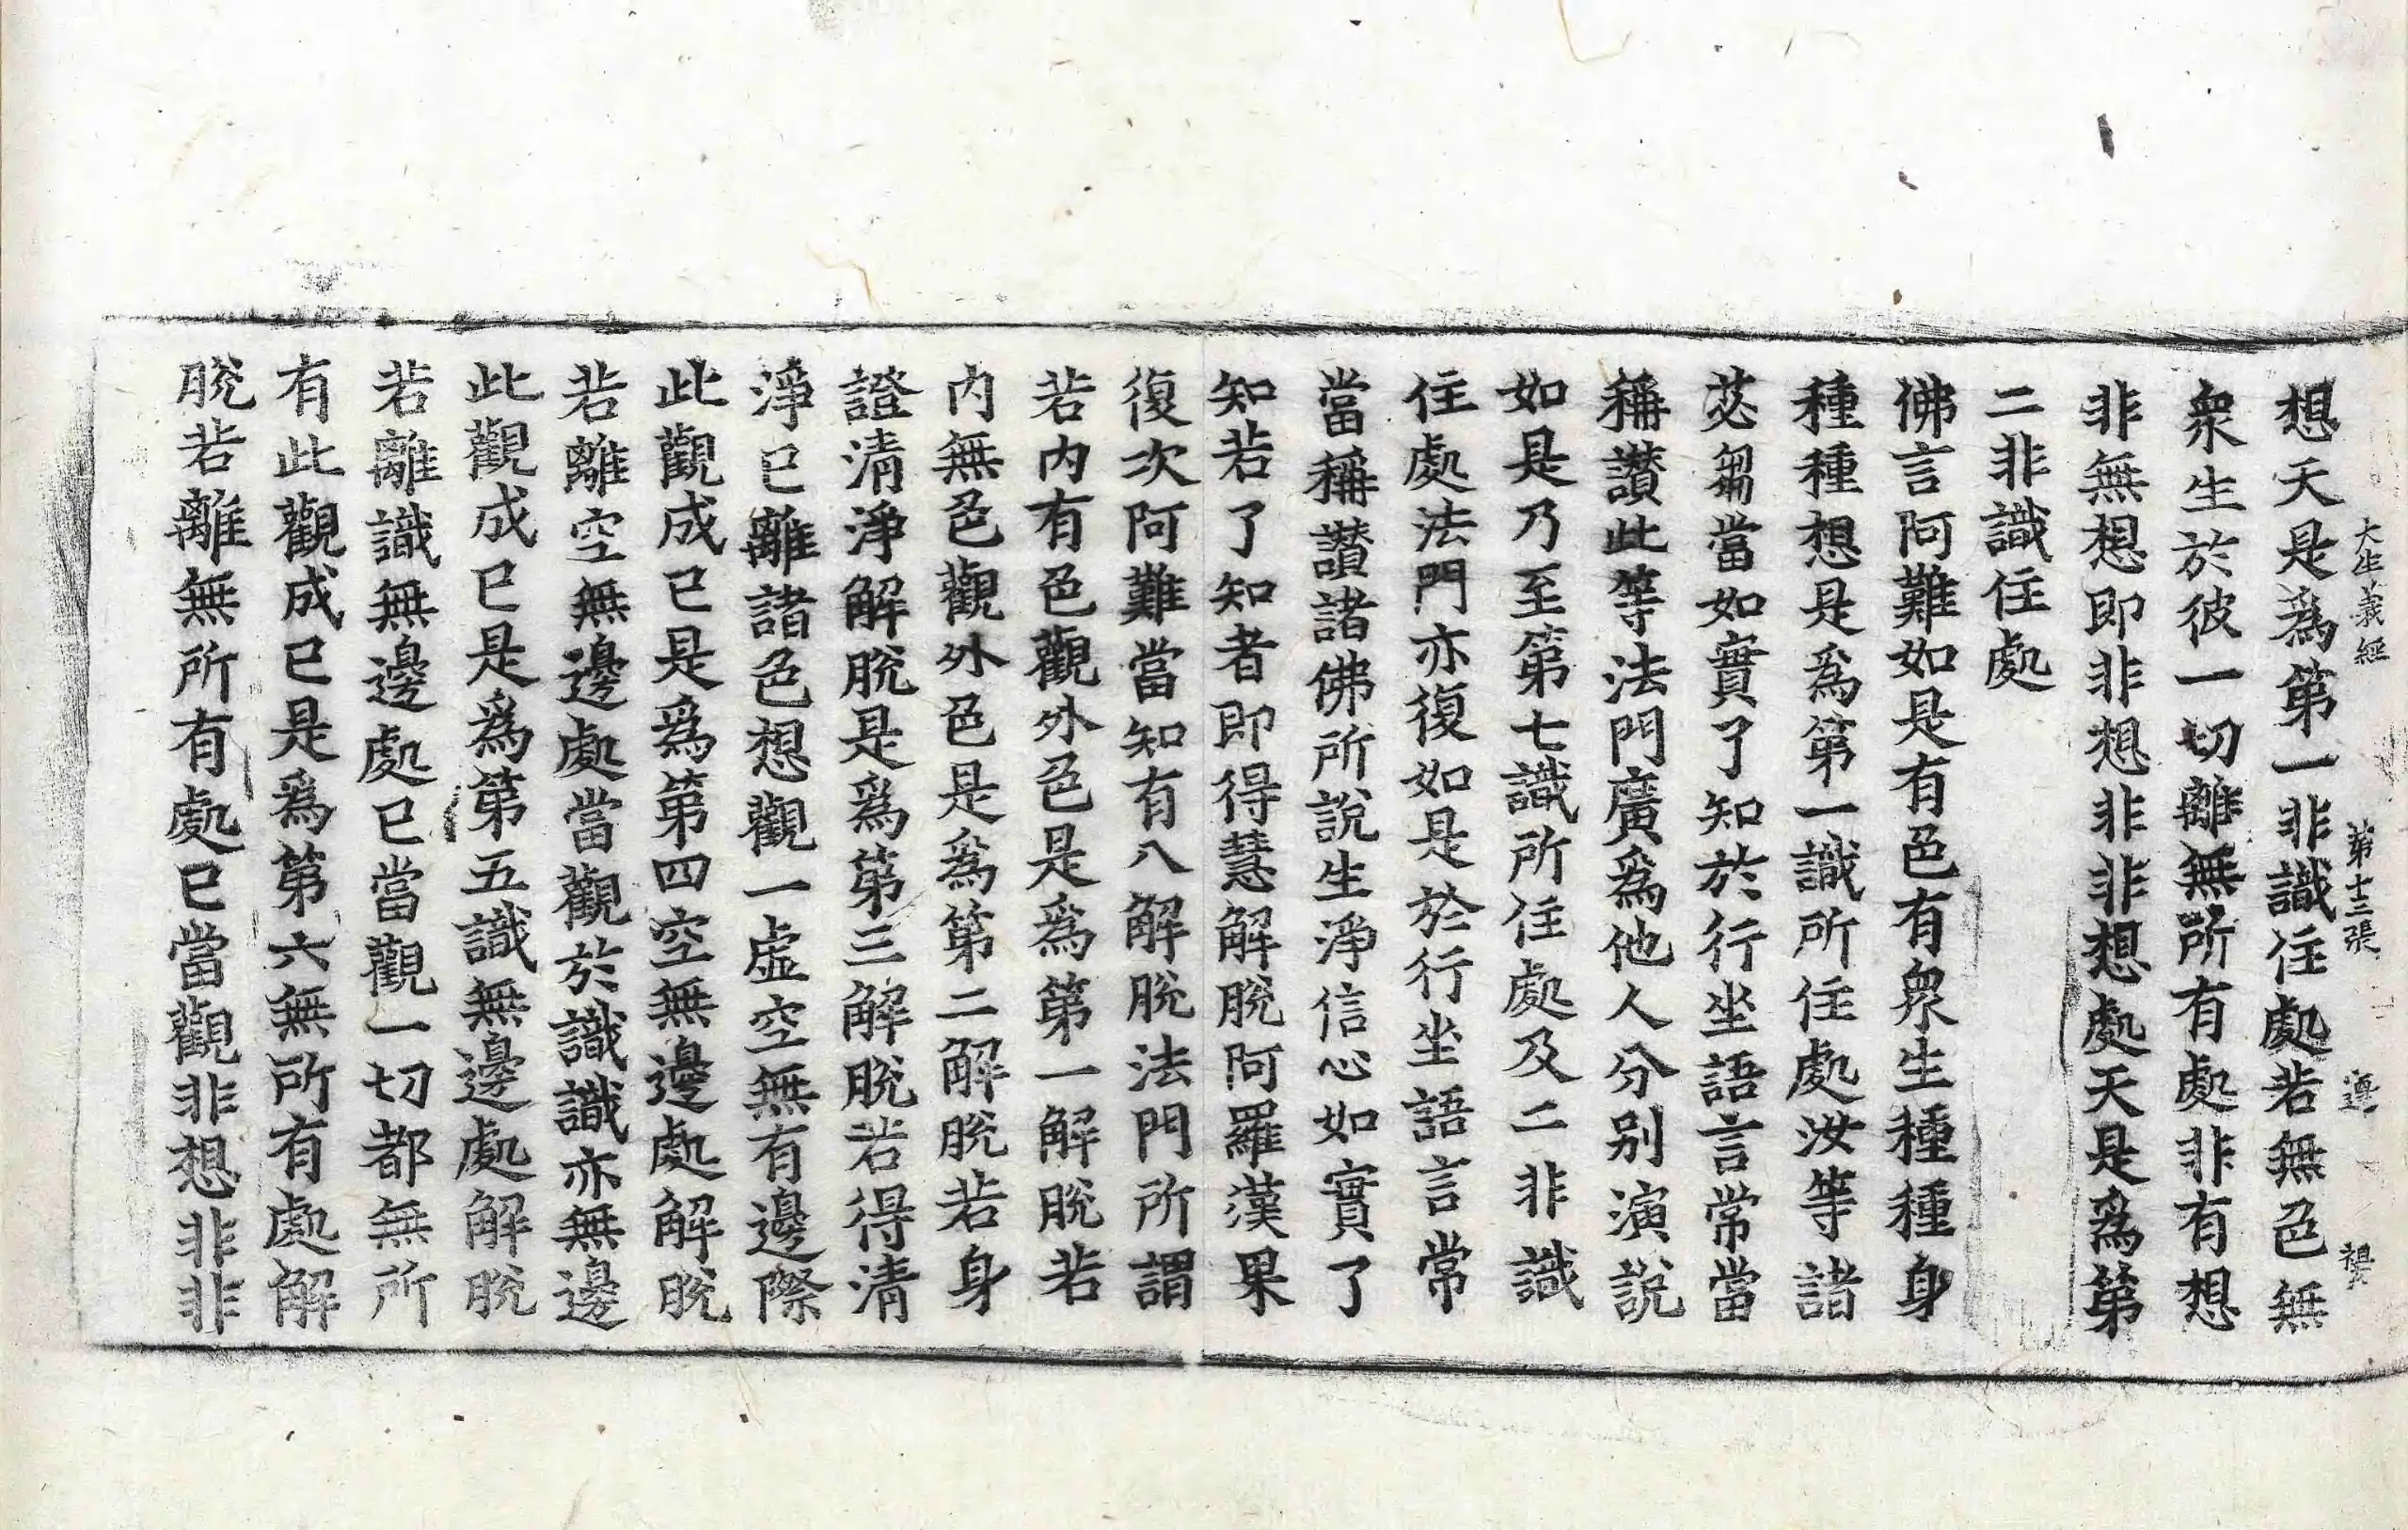 大生義經　第十三張　遵　楊
想天是爲第一非識住處若無色無
衆生於彼一切離無所有處非有想
非無想即非想非非想處天是爲第
二非識住處
佛言阿難如是有色有衆生種種身
種種想是爲第一識所住處汝等諸
苾芻當如實了知於行坐語言常當
稱讃此等法門廣爲他人分别演說
如是乃至第七識所住處及二非識
住處法門亦復如是於行坐語言常
當稱讃諸佛所說生淨信心如實了
知若了知者即得慧解脫阿羅漢果
復次阿難當知有八解脫法門所謂
若内有色觀外色是爲第一解脫若
内無色觀外色是爲第二解脫若身
證清淨解脫是爲第三解脫若得清
淨已離諸色想觀一虛空無有邊際
此觀成已是爲第四空無邊處解脫
若離空無邊處當觀於識識亦無邊
此觀成已是爲第五識無邊處解脫
若離識無邊處已當觀一切都無所
有此觀成已是爲第六無所有處解
脫若離無所有處已當觀非想非非